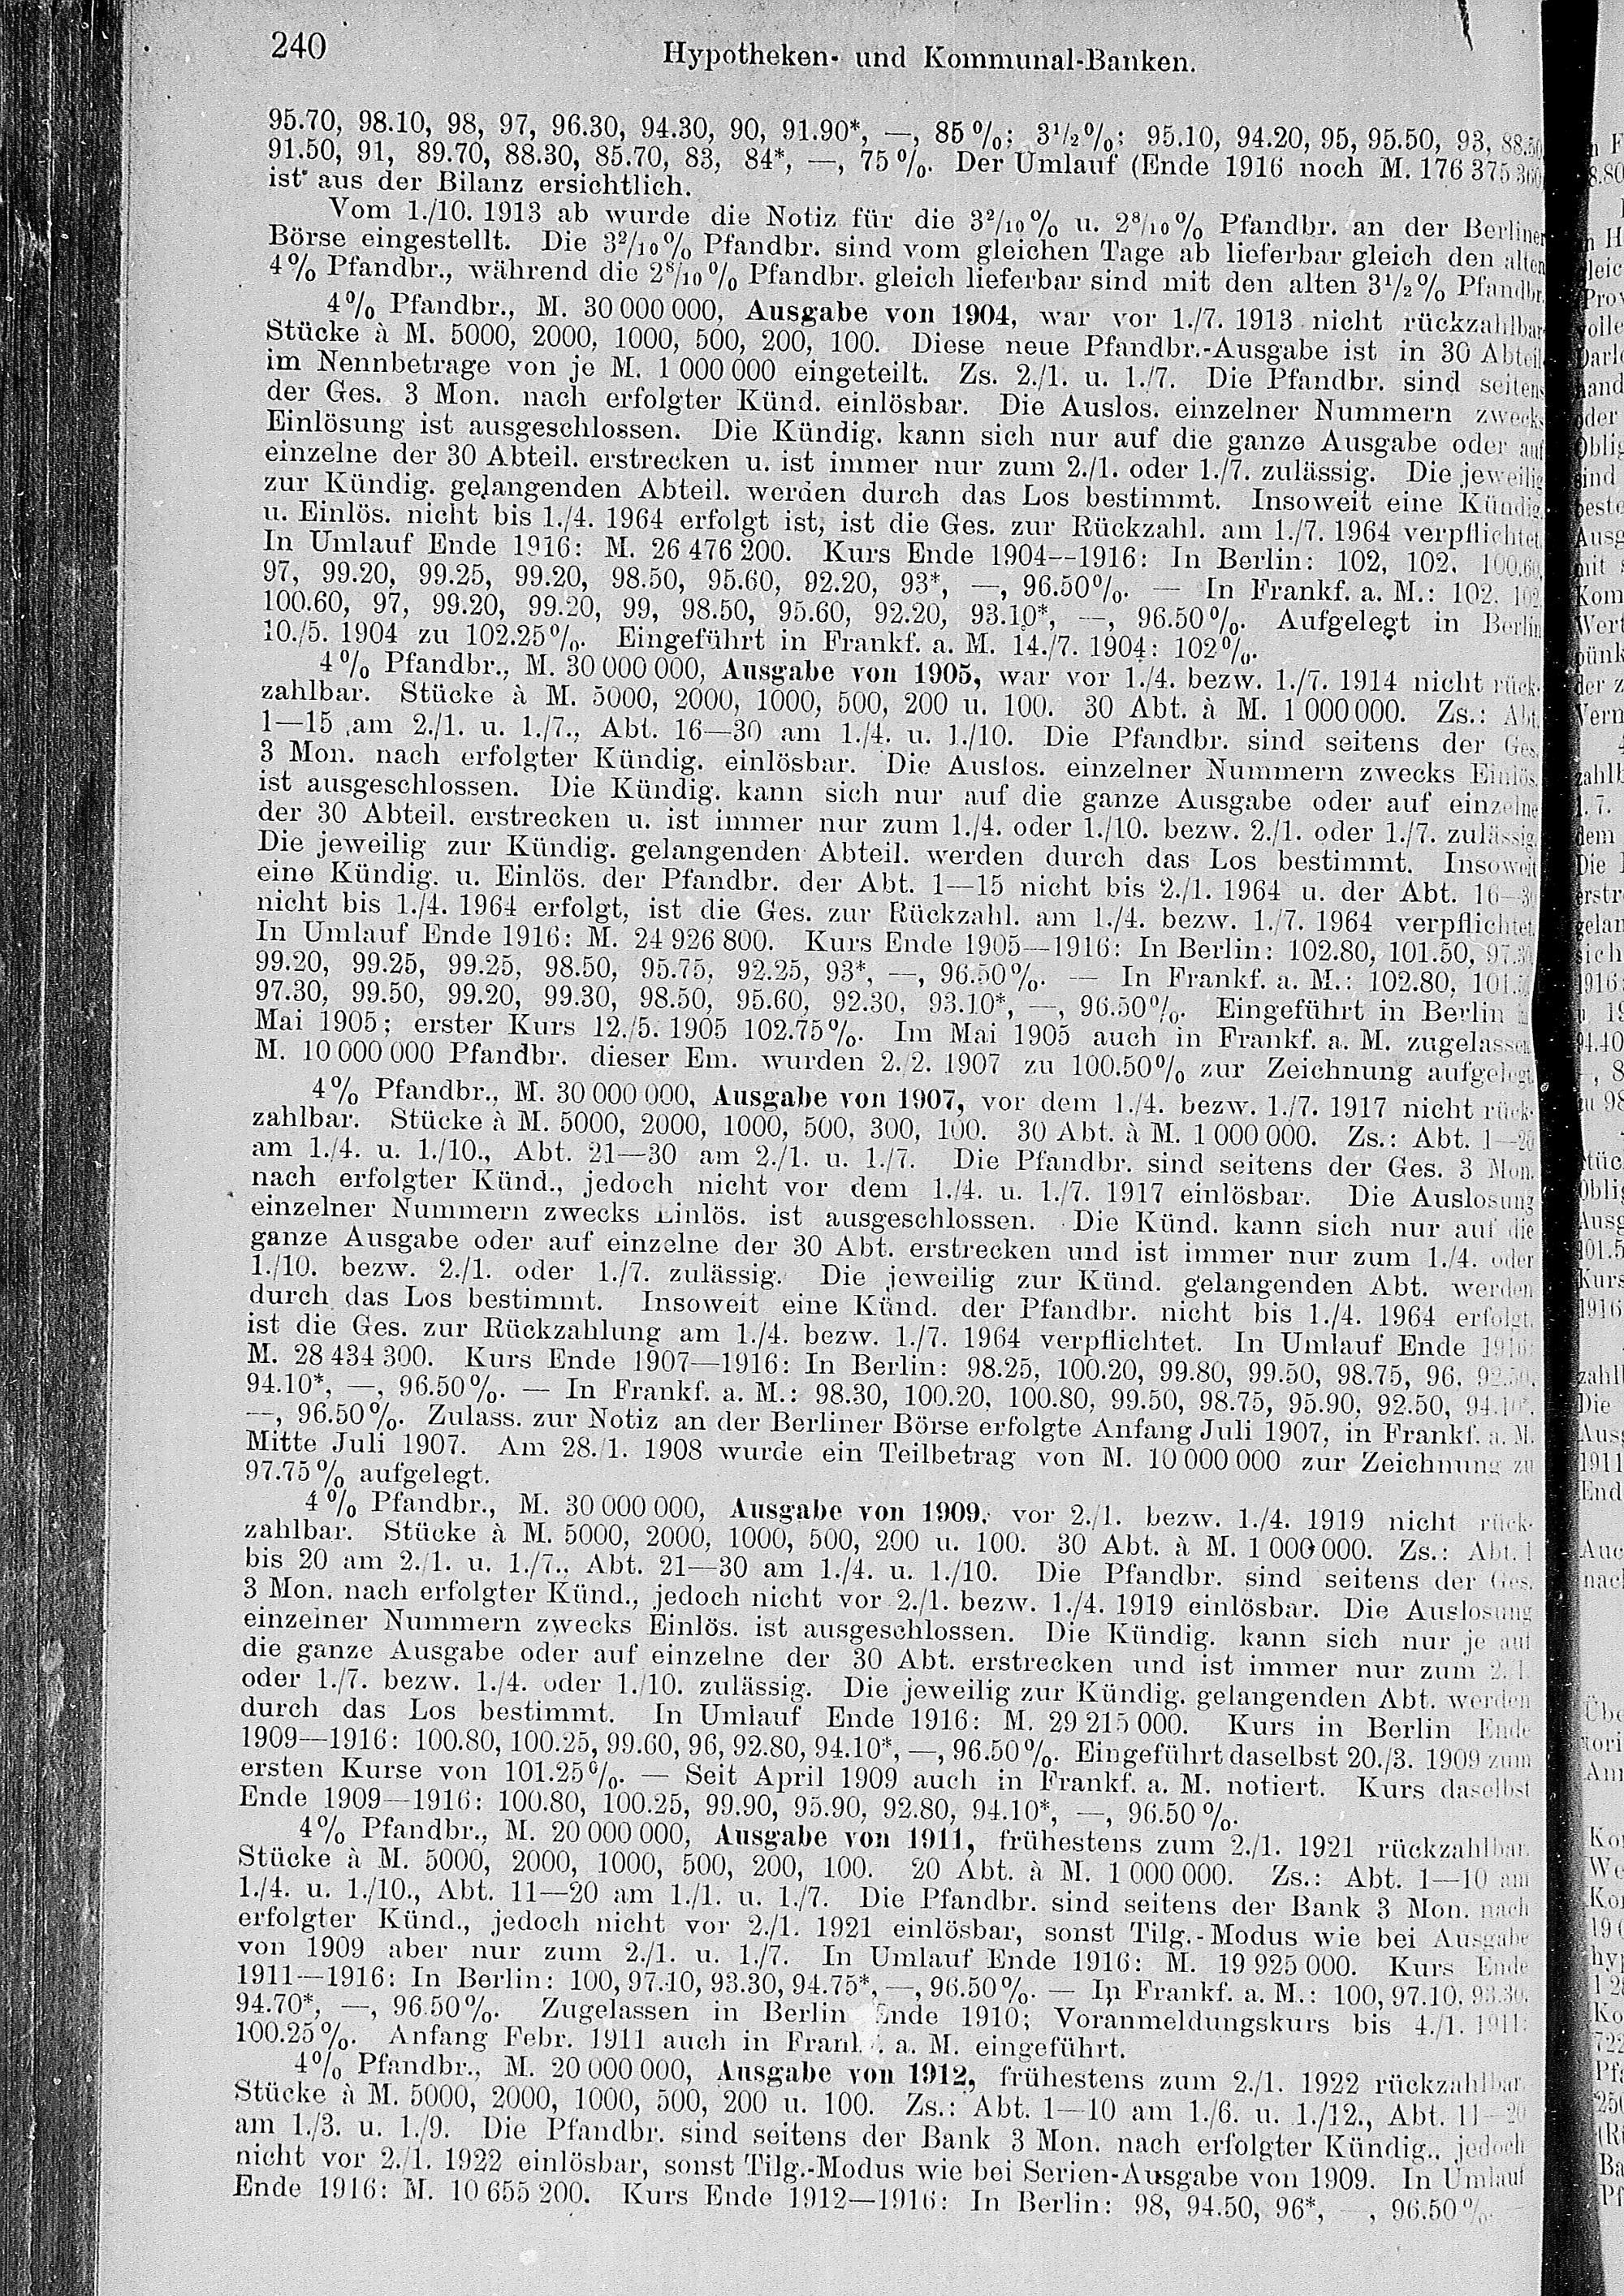 240
Hypotheken- und Kommunal-Banken.
95.70, 98.10, 98, 97, 96.30, 94.30, 90, 91.90*, —, 85 %; 3½%; 95.10, 94.20, 95, 95.50, 93, 88.50
91.50, 91, 89.70, 88.30, 85.70, 83, 84*, —, 75 %. Der Umlauf (Ende 1916 noch M. 176 375 360
ist aus der Bilanz ersichtlich.
Vom 1./10. 1913 ab wurde die Notiz für die 3²/₁₀% u. 2⁸/₁₀% Pfandbr. an der Berliner
Börse eingestellt. Die 3²/₁₀% Pfandbr. sind vom gleichen Tage ab lieferbar gleich den alten
4% Pfandbr., während die 2⁸/₁₀% Pfandbr. gleich lieferbar sind mit den alten 3½% Pfandbr.
4% Pfandbr., M. 30 000 000, Ausgabe von 1904, war vor 1./7. 1913 nicht rückzahlbar
Stücke à M. 5000, 2000, 1000, 500, 200, 100. Diese neue Pfandbr.-Ausgabe ist in 30 Abteil
im Nennbetrage von je M. 1 000 000 eingeteilt. Zs. 2./1. u. 1./7. Die Pfandbr. sind seitens
der Ges. 3 Mon. nach erfolgter Künd. einlösbar. Die Auslos. einzelner Nummern zwecks
Einlösung ist ausgeschlossen. Die Kündig. kann sich nur auf die ganze Ausgabe oder auf
einzelne der 30 Abteil. erstrecken u. ist immer nur zum 2./1. oder 1./7. zulässig. Die jeweilig
zur Kündig. gelangenden Abteil. werden durch das Los bestimmt. Insoweit eine Kündig.
u. Einlös. nicht bis 1./4. 1964 erfolgt ist, ist die Ges. zur Rückzahl. am 1./7. 1964 verpflichtet
In Umlauf Ende 1916: M. 26 476 200. Kurs Ende 1904—1916: In Berlin: 102, 102, 100.60,
97, 99.20, 99.25, 99.20, 98.50, 95.60, 92.20, 93*, —, 96.50%. — In Frankf. a. M.: 102, 102,
100.60, 97, 99.20, 99.20, 99, 98.50, 95.60, 92.20, 93.10*, —, 96.50%. Aufgelegt in Berlin
10./5. 1904 zu 102.25%. Eingeführt in Frankf. a. M. 14./7. 1904: 102%.
4% Pfandbr., M. 30 000 000, Ausgabe von 1905, war vor 1./4. bezw. 1./7. 1914 nicht rück-
zahlbar. Stücke à M. 5000, 2000, 1000, 500, 200 u. 100. 30 Abt. à M. 1 000 000. Zs.: Abt.
1—15 am 2./1. u. 1./7., Abt. 16—30 am 1./4. u. 1./10. Die Pfandbr. sind seitens der Ges.
3 Mon. nach erfolgter Kündig. einlösbar. Die Auslos. einzelner Nummern zwecks Einlös.
ist ausgeschlossen. Die Kündig. kann sich nur auf die ganze Ausgabe oder auf einzelne
der 30 Abteil. erstrecken u. ist immer nur zum 1./4. oder 1./10. bezw. 2./1. oder 1./7. zulässig.
Die jeweilig zur Kündig. gelangenden Abteil. werden durch das Los bestimmt. Insoweit
eine Kündig. u. Einlös. der Pfandbr. der Abt. 1—15 nicht bis 2./1. 1964 u. der Abt. 16—30
nicht bis 1./4. 1964 erfolgt, ist die Ges. zur Rückzahl. am 1./4. bezw. 1./7. 1964 verpflichtet.
In Umlauf Ende 1916: M. 24 926 800. Kurs Ende 1905—1916: In Berlin: 102.80, 101.50, 97.30
99.20, 99.25, 99.25, 98.50, 95.75, 92.25, 93*, —, 96.50%. — In Frankf. a. M.: 102.80, 101.50
97.30, 99.50, 99.20, 99.30, 98.50, 95.60, 92.30, 93.10*, —, 96.50%. Eingeführt in Berlin
Mai 1905; erster Kurs 12./5. 1905 102.75%. Im Mai 1905 auch in Frankf. a. M. zugelassen
M. 10 000 000 Pfandbr. dieser Em. wurden 2./2. 1907 zu 100.50% zur Zeichnung aufgelegt
4% Pfandbr., M. 30 000 000, Ausgabe von 1907, vor dem 1./4. bezw. 1./7. 1917 nicht rück-
zahlbar. Stücke à M. 5000, 2000, 1000, 500, 300, 100. 30 Abt. à M. 1 000 000. Zs.: Abt. 1—20
am 1./4. u. 1./10., Abt. 21—30 am 2./1. u. 1./7. Die Pfandbr. sind seitens der Ges. 3 Mon.
nach erfolgter Künd., jedoch nicht vor dem 1./4. u. 1./7. 1917 einlösbar. Die Auslosung
einzelner Nummern zwecks Einlös. ist ausgeschlossen. Die Künd. kann sich nur auf die
ganze Ausgabe oder auf einzelne der 30 Abt. erstrecken und ist immer nur zum 1./4. oder
1./10. bezw. 2./1. oder 1./7. zulässig. Die jeweilig zur Künd. gelangenden Abt. werden
durch das Los bestimmt. Insoweit eine Künd. der Pfandbr. nicht bis 1./4. 1964 erfolgt,
ist die Ges. zur Rückzahlung am 1./4. bezw. 1./7. 1964 verpflichtet. In Umlauf Ende 1916:
M. 28 434 300. Kurs Ende 1907—1916: In Berlin: 98.25, 100.20, 99.80, 99.50, 98.75, 96, 92.50,
94.10*, —, 96.50%. — In Frankf. a. M.: 98.30, 100.20, 100.80, 99.50, 98.75, 95.90, 92.50, 94.10*,
—, 96.50%. Zulass. zur Notiz an der Berliner Börse erfolgte Anfang Juli 1907, in Frankf. a. M.
Mitte Juli 1907. Am 28./1. 1908 wurde ein Teilbetrag von M. 10 000 000 zur Zeichnung zu
97.75% aufgelegt.
4% Pfandbr., M. 30 000 000, Ausgabe von 1909, vor 2./1. bezw. 1./4. 1919 nicht rück-
zahlbar. Stücke à M. 5000, 2000, 1000, 500, 200 u. 100. 30 Abt. à M. 1 000 000. Zs.: Abt. 1
bis 20 am 2./1. u. 1./7., Abt. 21—30 am 1./4. u. 1./10. Die Pfandbr. sind seitens der Ges.
3 Mon. nach erfolgter Künd., jedoch nicht vor 2./1. bezw. 1./4. 1919 einlösbar. Die Auslosung
einzelner Nummern zwecks Einlös. ist ausgeschlossen. Die Kündig. kann sich nur je auf
die ganze Ausgabe oder auf einzelne der 30 Abt. erstrecken und ist immer nur zum 2./1.
oder 1./7. bezw. 1./4. oder 1./10. zulässig. Die jeweilig zur Kündig. gelangenden Abt. werden
durch das Los bestimmt. In Umlauf Ende 1916: M. 29 215 000. Kurs in Berlin Ende
1909—1916: 100.80, 100.25, 99.60, 96, 92.80, 94.10*, —, 96.50%. Eingeführt daselbst 20./3. 1909 zum
ersten Kurse von 101.25%. — Seit April 1909 auch in Frankf. a. M. notiert. Kurs daselbst
Ende 1909—1916: 100.80, 100.25, 99.90, 95.90, 92.80, 94.10*, —, 96.50%.
4% Pfandbr., M. 20 000 000, Ausgabe von 1911, frühestens zum 2./1. 1921 rückzahlbar.
Stücke à M. 5000, 2000, 1000, 500, 200, 100. 20 Abt. à M. 1 000 000. Zs.: Abt. 1—10 am
1./4. u. 1./10., Abt. 11—20 am 1./1. u. 1./7. Die Pfandbr. sind seitens der Bank 3 Mon. nach
erfolgter Künd., jedoch nicht vor 2./1. 1921 einlösbar, sonst Tilg.-Modus wie bei Ausgabe
von 1909 aber nur zum 2./1. u. 1./7. In Umlauf Ende 1916: M. 19 925 000. Kurs Ende
1911—1916: In Berlin: 100, 97.10, 93.30, 94.75*, —, 96.50%. — In Frankf. a. M.: 100, 97.10, 93.30,
94.70*, —, 96.50%. Zugelassen in Berlin Ende 1910; Voranmeldungskurs bis 4./1. 1911:
100.25%. Anfang Febr. 1911 auch in Frankf. a. M. eingeführt.
4% Pfandbr., M. 20 000 000, Ausgabe von 1912, frühestens zum 2./1. 1922 rückzahlbar.
Stücke à M. 5000, 2000, 1000, 500, 200 u. 100. Zs.: Abt. 1—10 am 1./6. u. 1./12., Abt. 11—20
am 1./3. u. 1./9. Die Pfandbr. sind seitens der Bank 3 Mon. nach erfolgter Kündig., jedoch
nicht vor 2./1. 1922 einlösbar, sonst Tilg.-Modus wie bei Serien-Ausgabe von 1909. In Umlauf
Ende 1916: M. 10 655 200. Kurs Ende 1912—1916: In Berlin: 98, 94.50, 96*, —, 96.50%.